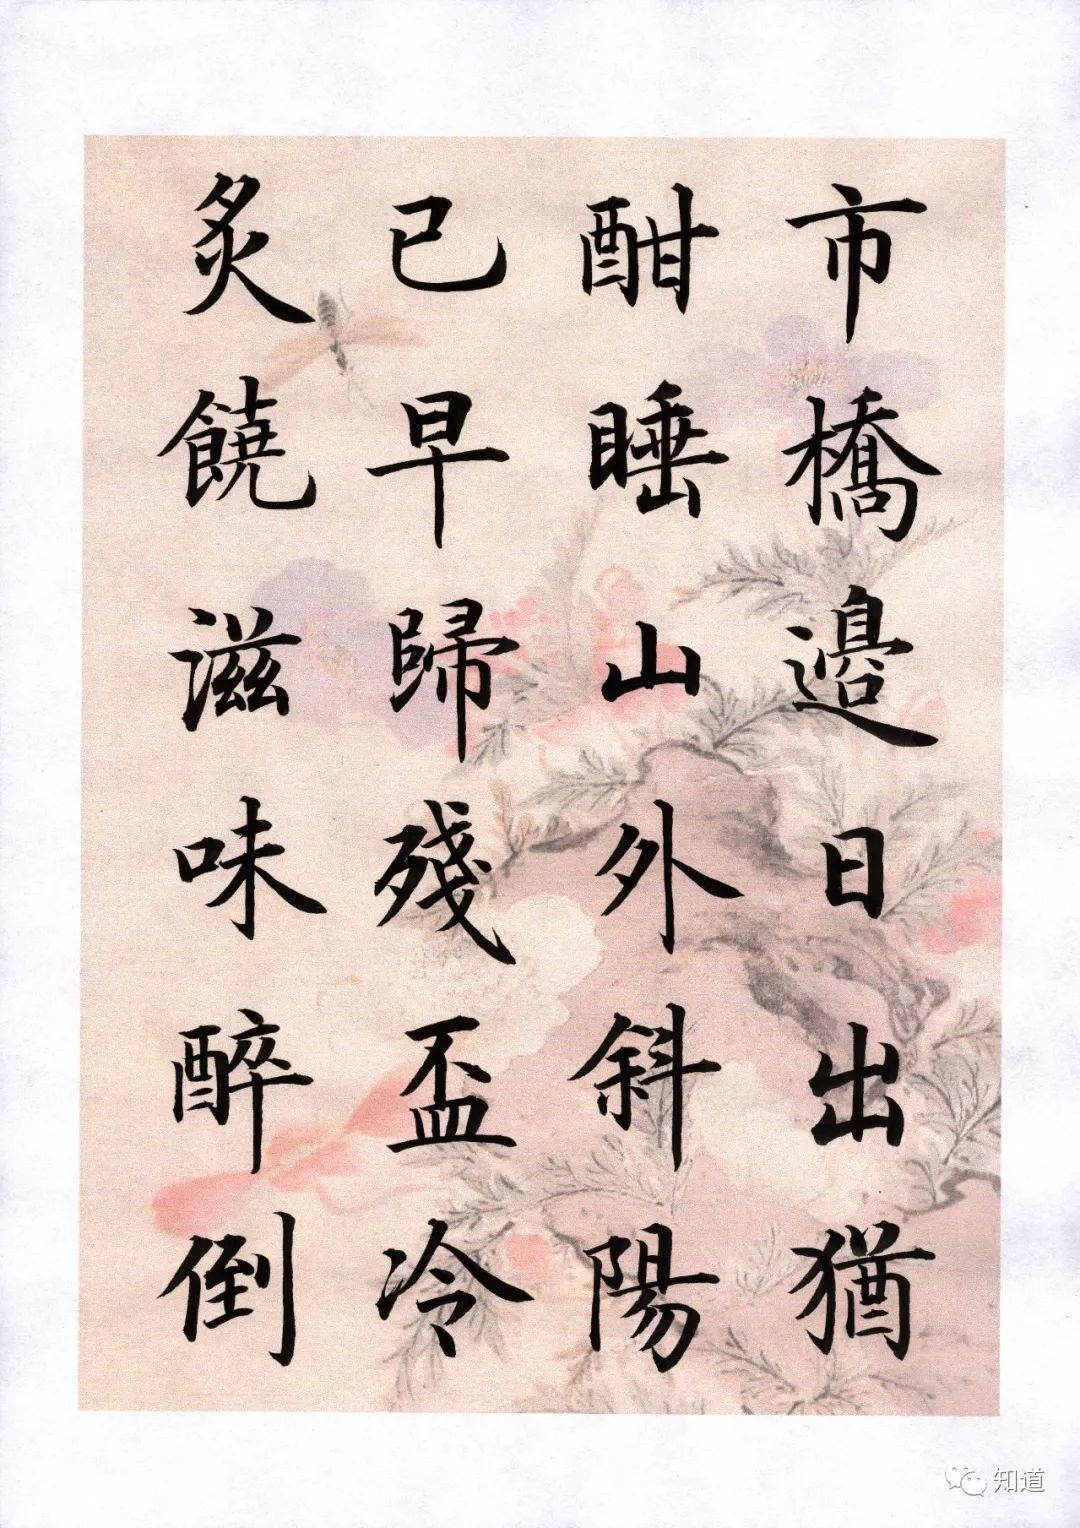 市橋邉日出猶
酣睡山外斜陽
已早歸殘盃冷
炙饒滋味醉倒
知道